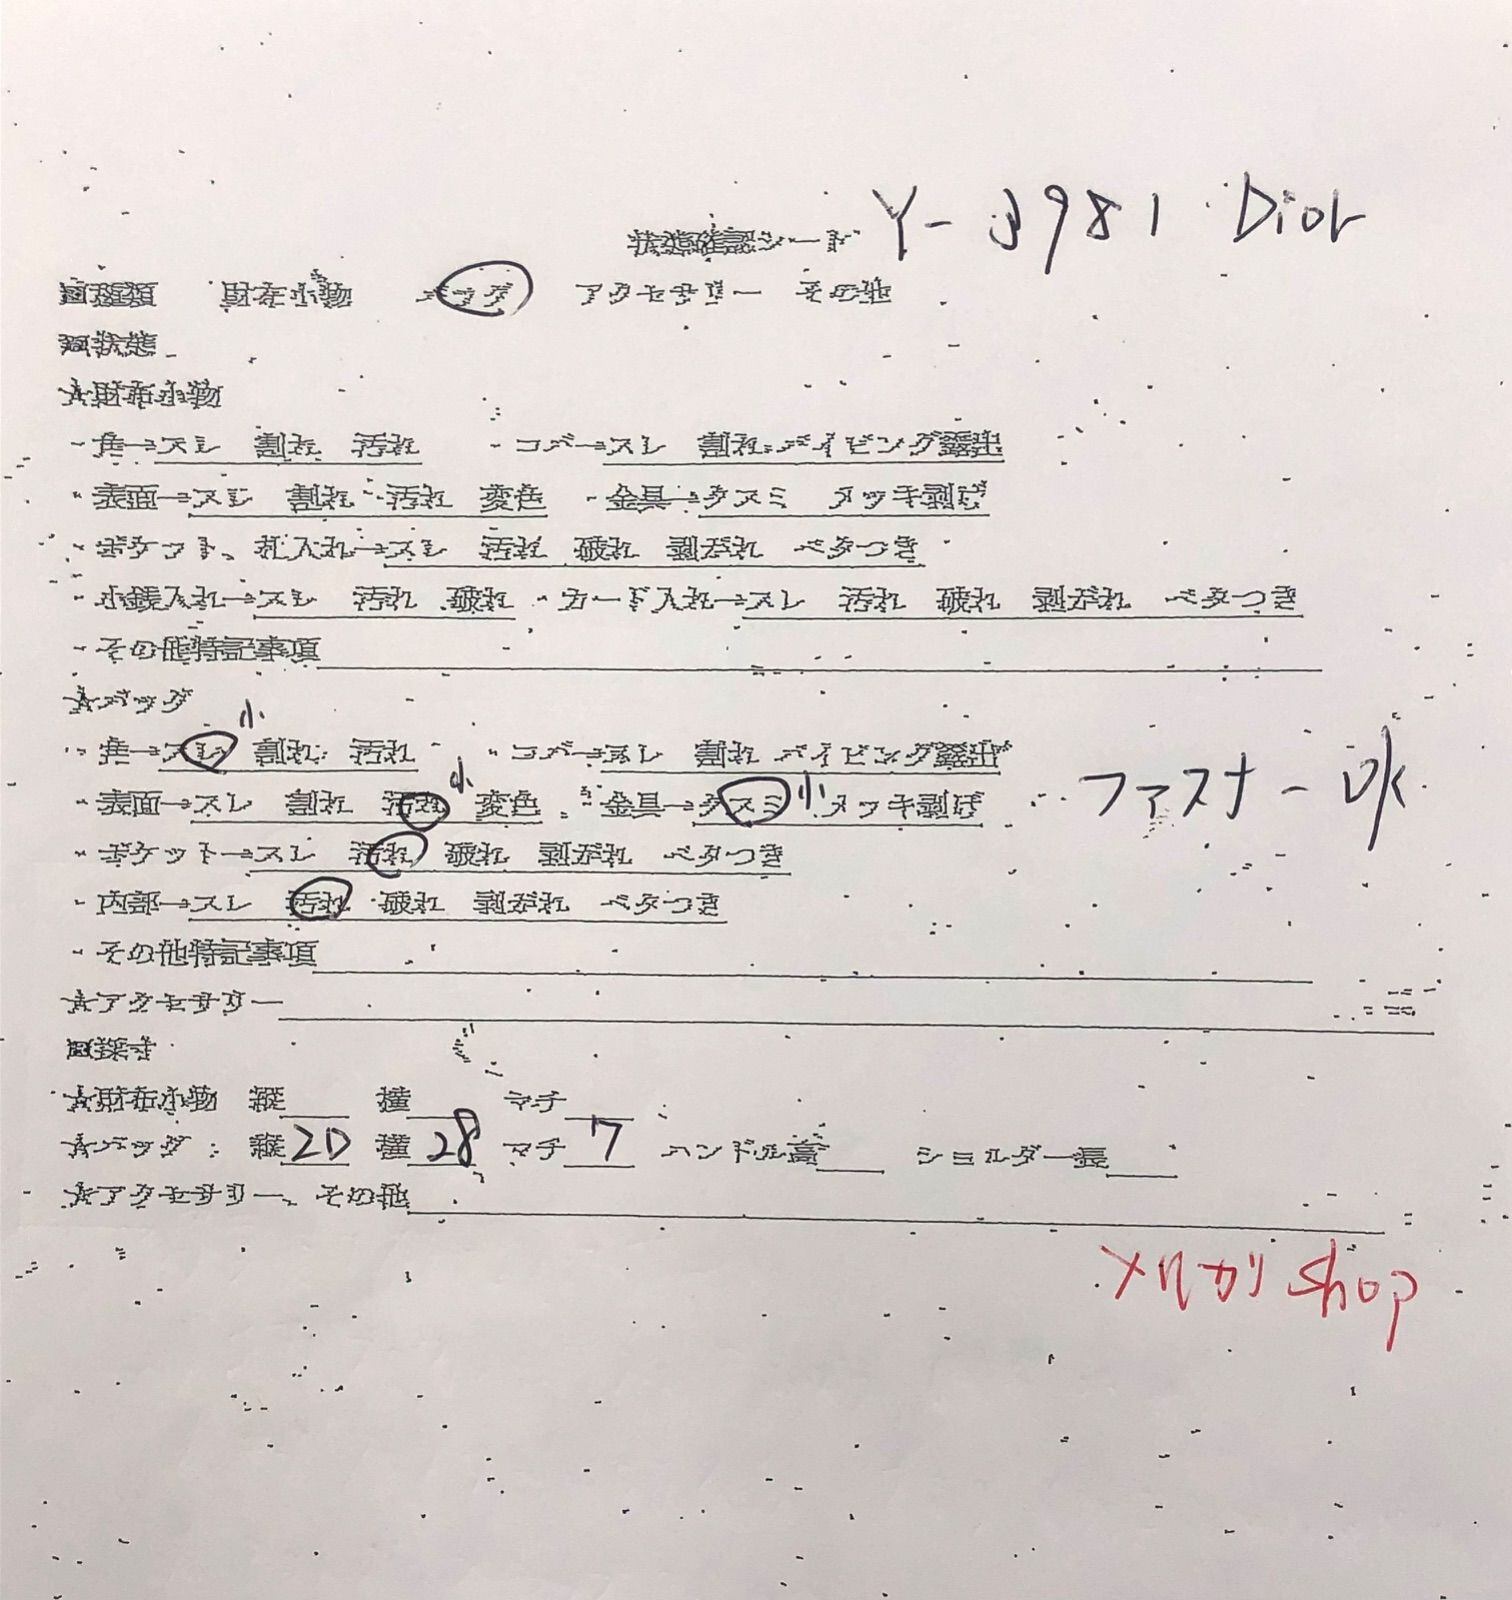 状態確認シート Y-3981 Dior
■種類 財布小物 バッグ アクセサリー その他
■状態
★財布小物
・角→スレ 割れ 汚れ ・コバ→スレ 割れ パイピング露出
・表面→スレ 割れ 汚れ 変色 ・金具→クスミ メッキ剥げ
・ポケット、札入れ→スレ 汚れ 破れ 剥がれ ベタつき
・小銭入れ→スレ 汚れ 破れ ・カード入れ→スレ 汚れ 破れ 剥がれ ベタつき
・その他特記事項
★バッグ
小
・角→スレ 割れ 汚れ ・コバ→スレ 割れ パイピング露出
小
・表面→スレ 割れ 汚れ 変色 ・金具→クスミ 小 メッキ剥げ ファスナーOK
・ポケット→スレ 汚れ 破れ 剥がれ ベタつき
・内部→スレ 汚れ 破れ 剥がれ ベタつき
・その他特記事項
★アクセサリー
■採寸
★財布小物 縦 横 マチ
★バッグ 縦20 横28 マチ7 ハンドル高 ショルダー長
★アクセサリー、その他
メルカリshop